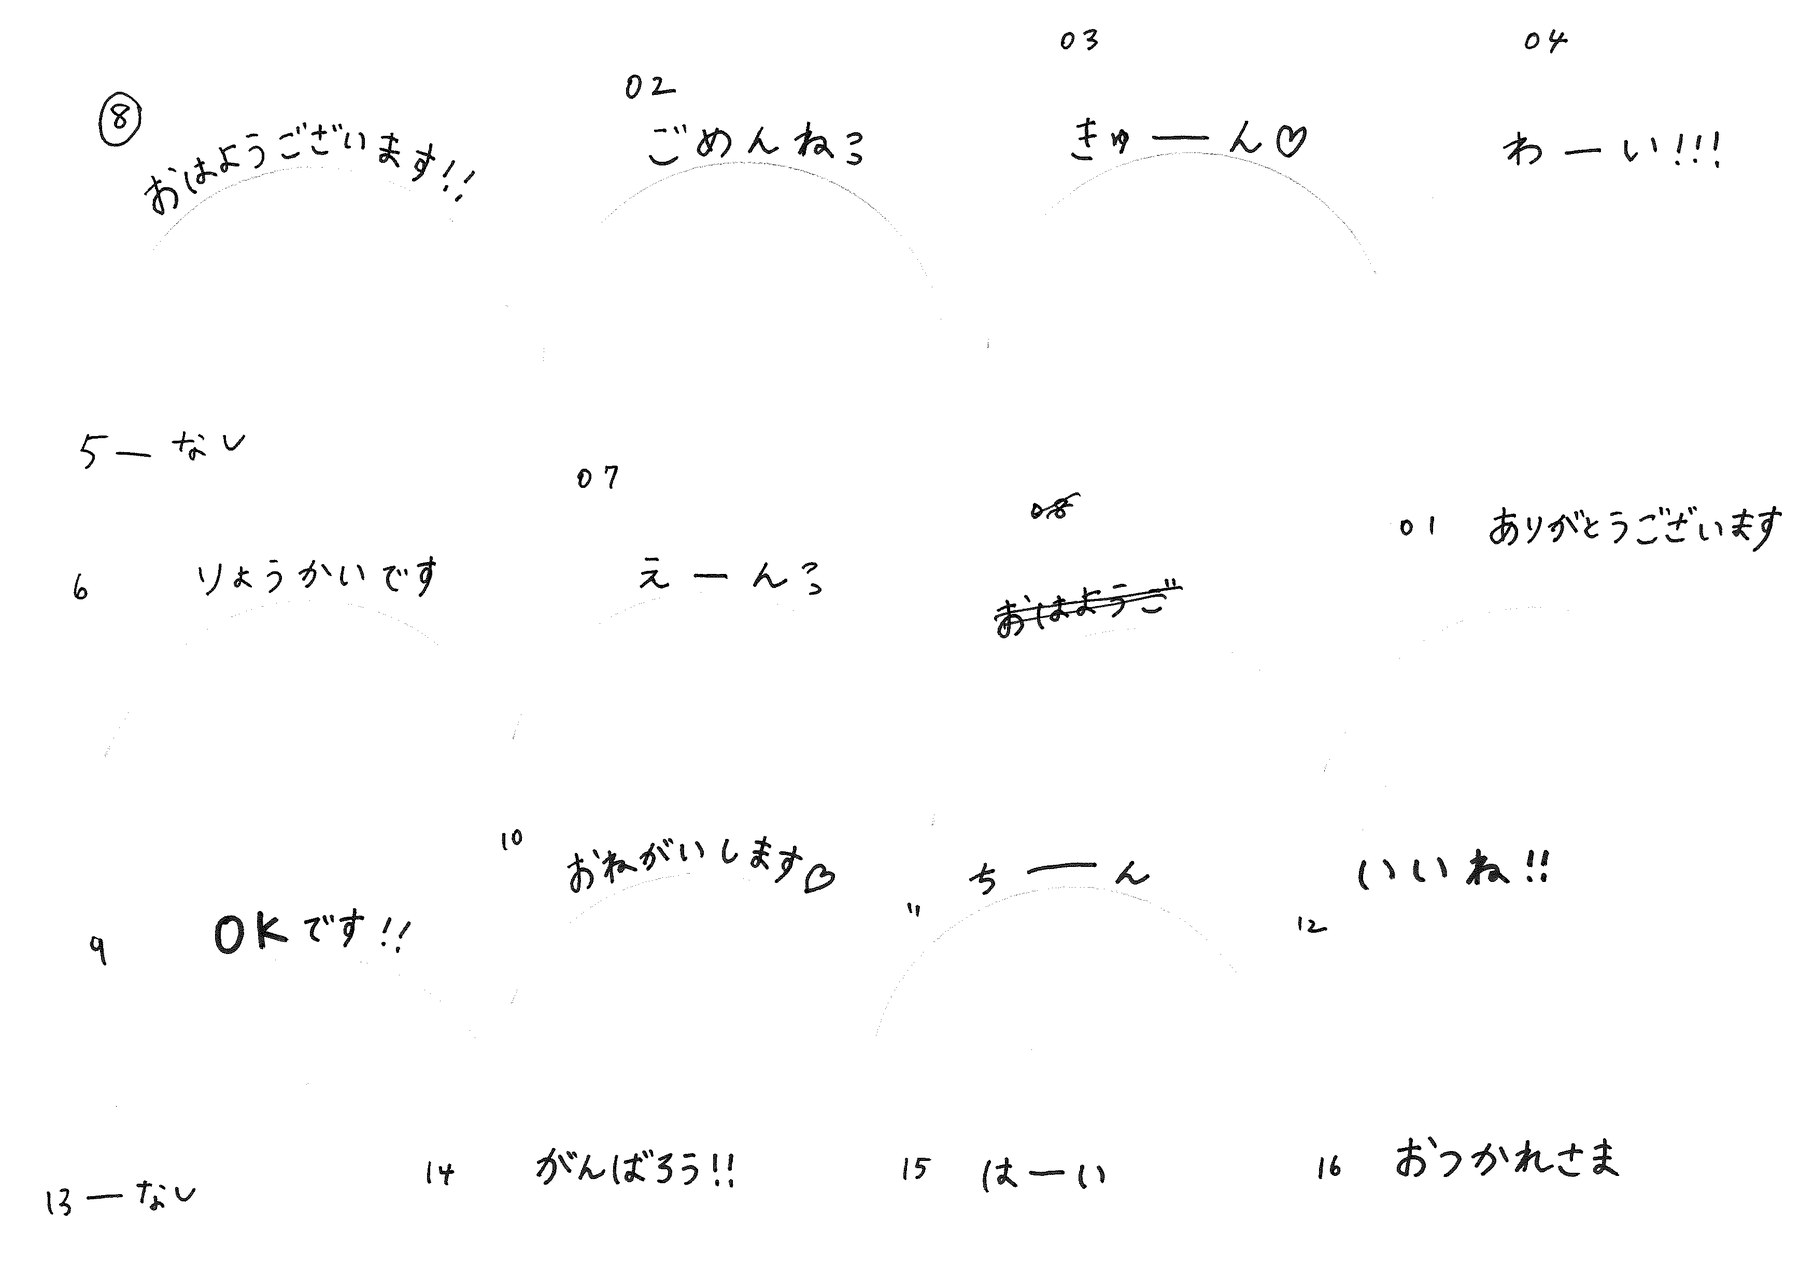 ⑧
おはようございます!!
02
ごめんねろ
03
きゅーん♡
04
わーい!!!
5ーなし
6 りょうかいです
07
えーんろ
08
おはようご
01 ありがとうございます
9 OKです!!
10 おねがいします♡
11 ちーん
12 いいね!!
13ーなし
14 がんばろう!!
15 はーい
16 おつかれさま